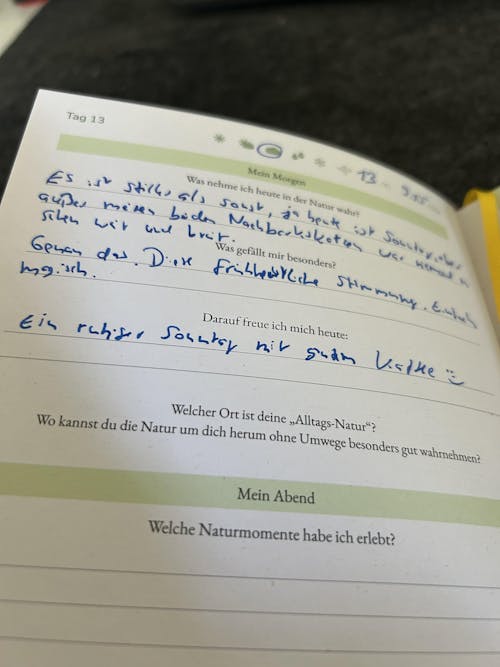 Tag 13
13
Mein Morgen
Was nehme ich heute in der Natur wahr?
Es ist stiller als sonst, ja heute ist Sonntag, aber
außer meinen beiden Nachbarskatzen war niemand
sehen weit und breit.
Was gefällt mir besonders?
Genau das. Diese frühherbstliche Stimmung. Einfach
magisch.
Darauf freue ich mich heute:
Ein ruhiger Sonntag mit gutem Kaffee
Welcher Ort ist deine „Alltags-Natur“?
Wo kannst du die Natur um dich herum ohne Umwege besonders gut wahrnehmen?
Mein Abend
Welche Naturmomente habe ich erlebt?